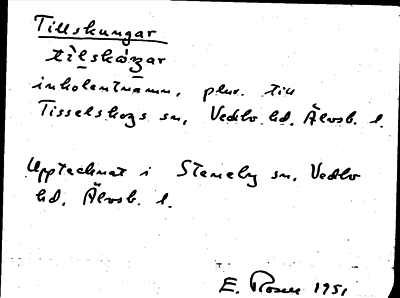 Tillskungar
tilskåŋar
inbolentnamn, plur. till
Tisselskogs sn, Vedbo hd. Älvsb. l.
Upptecknat i Steneby sn, Vedbo
hd. Älvsb. l.
E. Rosen 1951